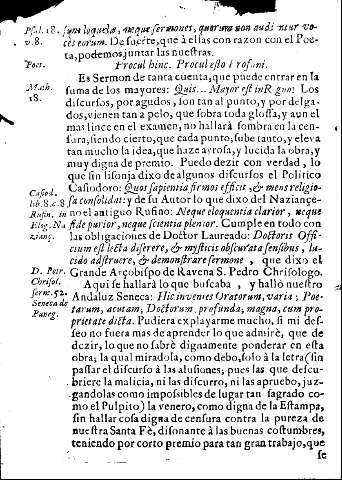 Psal. 18.
v. 8.
sunt loquelæ, neque sermones, quorum non audiantur vo-
ces eorum. De suerte, que à ellas con razon con el Poe-
ta, podemos juntar las nuestras.
Poet.
Procul hinc. Procul esto i rofani.
Math.
18.
Es Sermon de tanta cuenta, que puede entrar en la
suma de los mayores: Quis... Mayor est in R gno: Los
discursos, por agudos, son tan al punto, y por delga-
dos, vienen tan a pelo, que sobra toda glossa, y aun el
mas lince en el examen, no hallarà sombra en la cen-
sura, siendo cierto, que cada punto, sube tanto, y eleva
tan mucho la idea, que haze ayrosa, y lucida la obra, y
muy digna de premio. Puedo dezir con verdad, lo
que sin lisonja dixo de algunos discursos el Politico
Casiod.
lib. 8. c. 8.
Rufin. in
Elog. Na
zianç.
Casiodoro: Quos sapientia firmos efficit, & mens religio-
sa consolidat: y de su Autor lo que dixo del Nazianze-
no el antiguo Rufino: Neque eloquentia clarior, neque
fide purior, neque scientia plenior. Cumple en todo con
las obligaciones de Doctor Laureado: Doctoris Offi-
cium est lecta diserere, & mysticis obscurata sensibus, lu-
cido adstruere, & demonstrare sermone, que dixo el
D. Petr.
Chrisol.
serm. 52.
Seneca de
Paneg.
Grande Arçobispo de Ravena S. Pedro Chrisologo.
Aqui se hallarà lo que buscaba, y hallò nuestro
Andaluz Seneca: Hic invenes Oratorum, varia; Poe-
tarum, acutam, Doctorum, profunda, magna, cum pro-
prietate dicta. Pudiera explayarme mucho, si mi des-
seo no fuera mas de aprender lo que admirè, que de
dezir, lo que no sabrè dignamente ponderar en esta
obra; la qual miradola, como debo, solo à la letra (sin
passar el discurso à las alusiones; pues las que descu-
briere la malicia, ni las discurro, ni las apruebo, juz-
gandolas como impossibles de lugar tan sagrado co-
mo el Pulpito) la venero, como digna de la Estampa,
sin hallar cosa digna de censura contra la pureza de
nuestra Santa Fè, disonante à las buenas costumbres,
teniendo por corto premio para tan gran trabajo, que
se